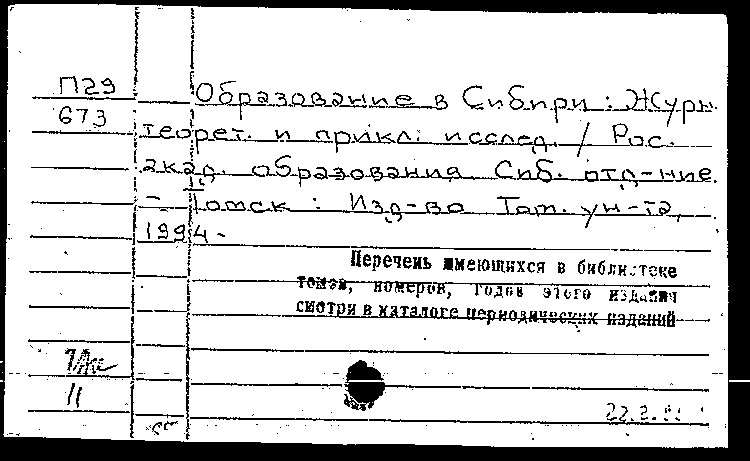 П29
673
Образование в Сибири : Журн.
теорет. и прикл. исслед. / Рос.
акад. образования. Сиб. отд-ние.
- Томск : Изд-во Том. ун-та,
1994-
Перечень имеющихся в библиотеке
томов, номеров, годов этого издания
смотри в каталоге периодических изданий
11